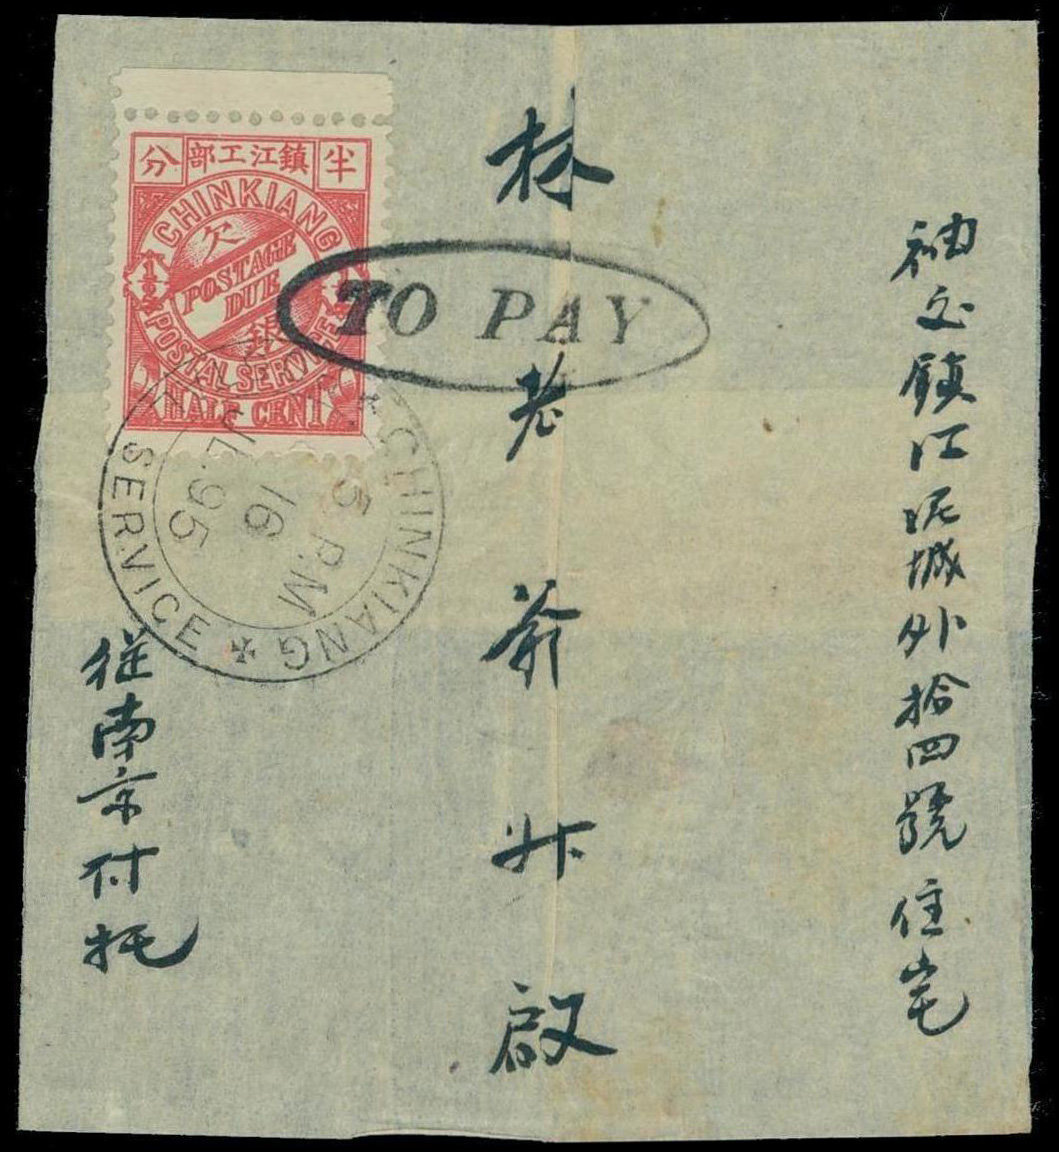 袖交鎮江泥城外拾四號住宅
林老爺升啟
從南京付托
分 鎮江工部 半
CHINKIANG
欠
POSTAGE
DUE
銀
POSTAL SERVICE
HALF CENT
TO PAY
CHINKIANG
SERVICE
5 P.M
16
JL.95